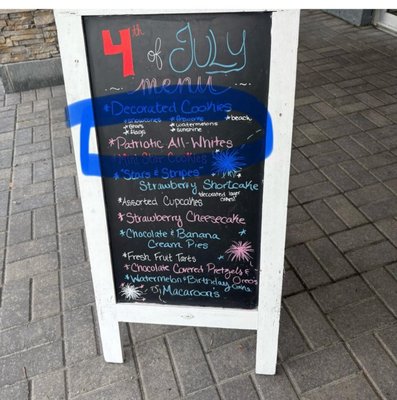 4th of JULY
menu
*Decorated Cookies
*Fireworks
*beach
*Stars
*Watermelons
*Flags
*Sunshine
*Patriotic All-Whites
Star Cookies
*"Stars & Stripes"
Strawberry Shortcake
*decorated layer cakes!
*Assorted Cupcakes
*Strawberry Cheesecake
*Chocolate & Banana
Cream Pies
*Fresh Fruit Tarts
*Chocolate Covered Pretzels &
Oreos
*Watermelon & Birthday
Macaroons